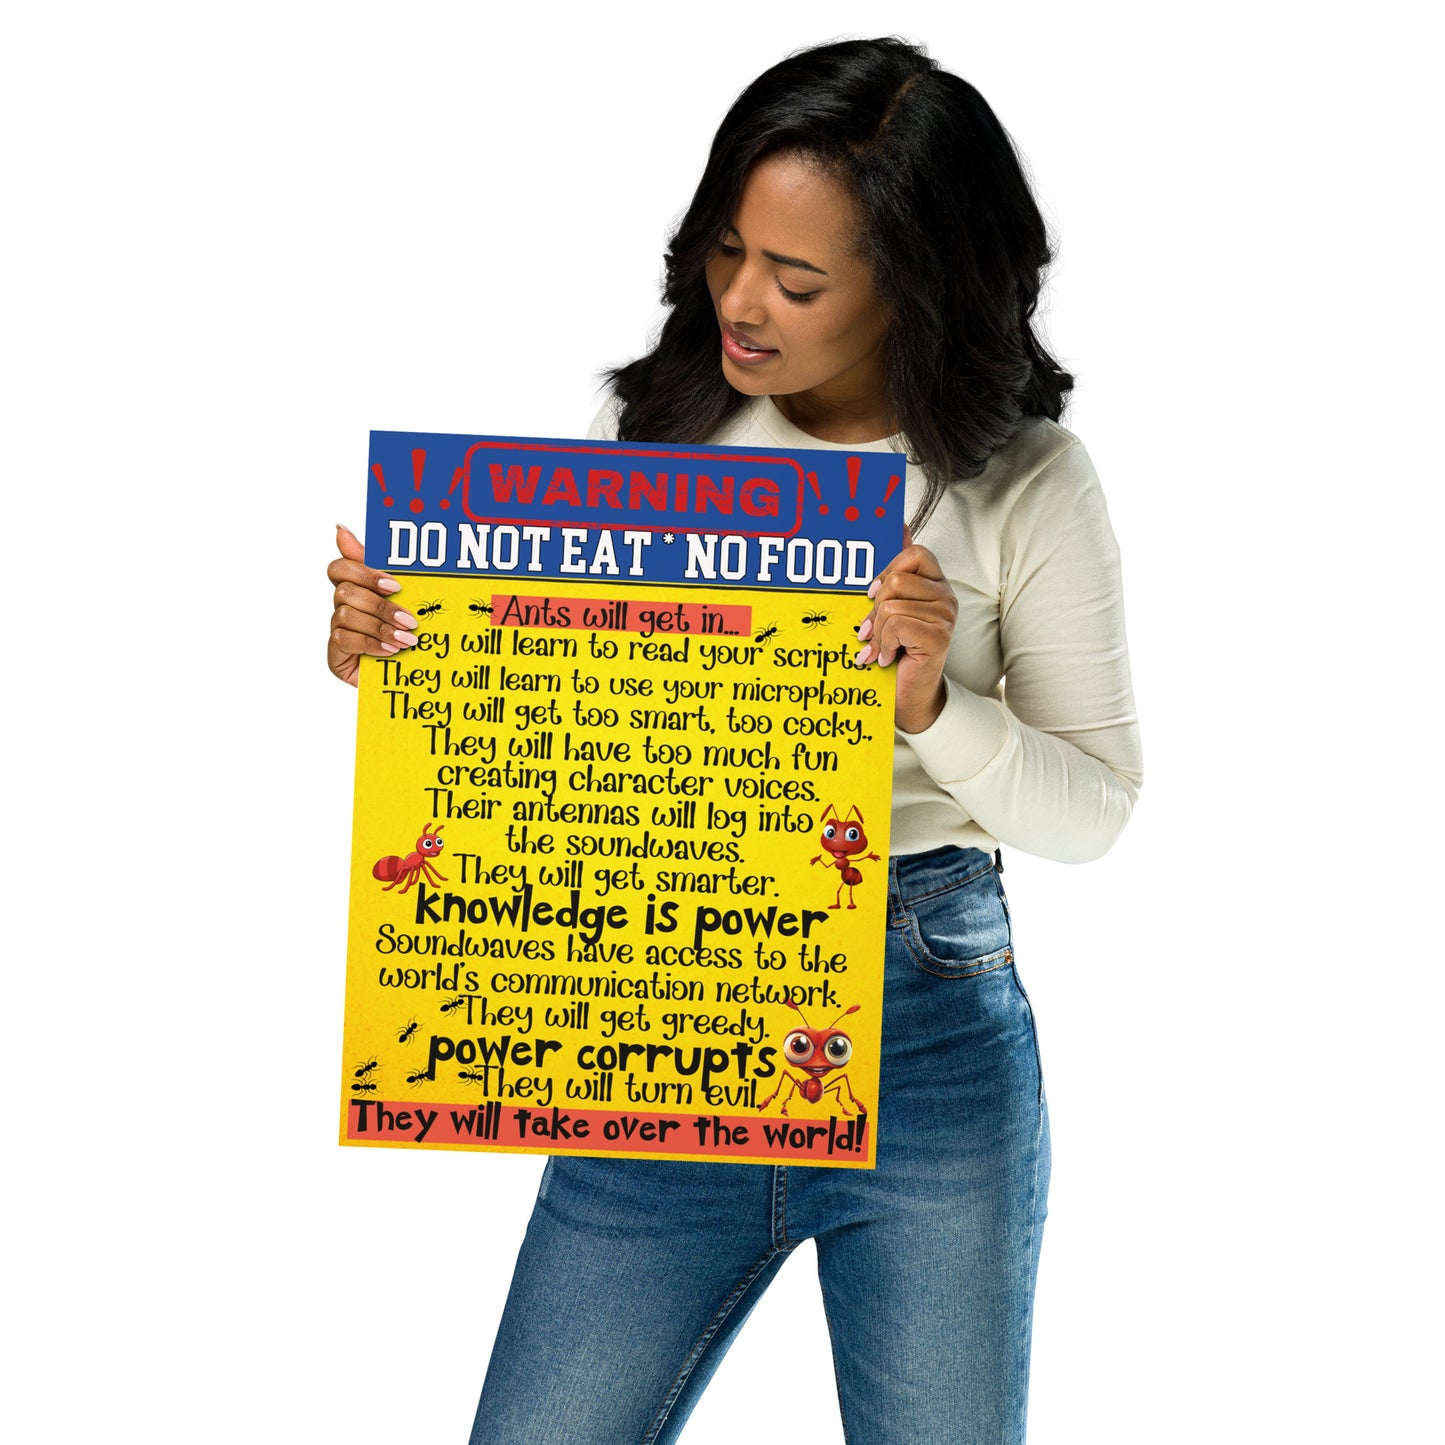 !!! WARNING !!!
DO NOT EAT * NO FOOD
Ants will get in...
They will learn to read your scripts.
They will learn to use your microphone.
They will get too smart, too cocky.,
They will have too much fun
creating character voices.
Their antennas will log into
the soundwaves.
They will get smarter.
knowledge is power
Soundwaves have access to the
world's communication network.
They will get greedy.
power corrupts
They will turn evil.
They will take over the world!